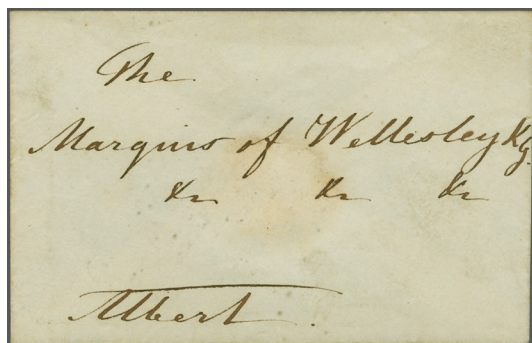 The
Marquis of Wellesley KG.
&c &c &c
Albert.